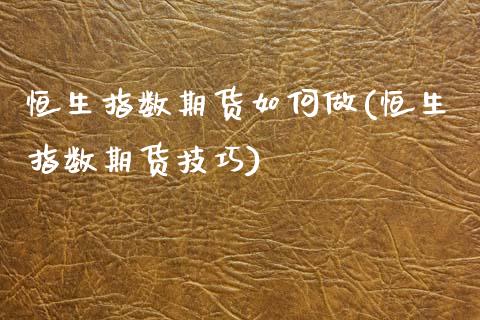 恒生指数期货如何做(恒生
指数期货技巧)